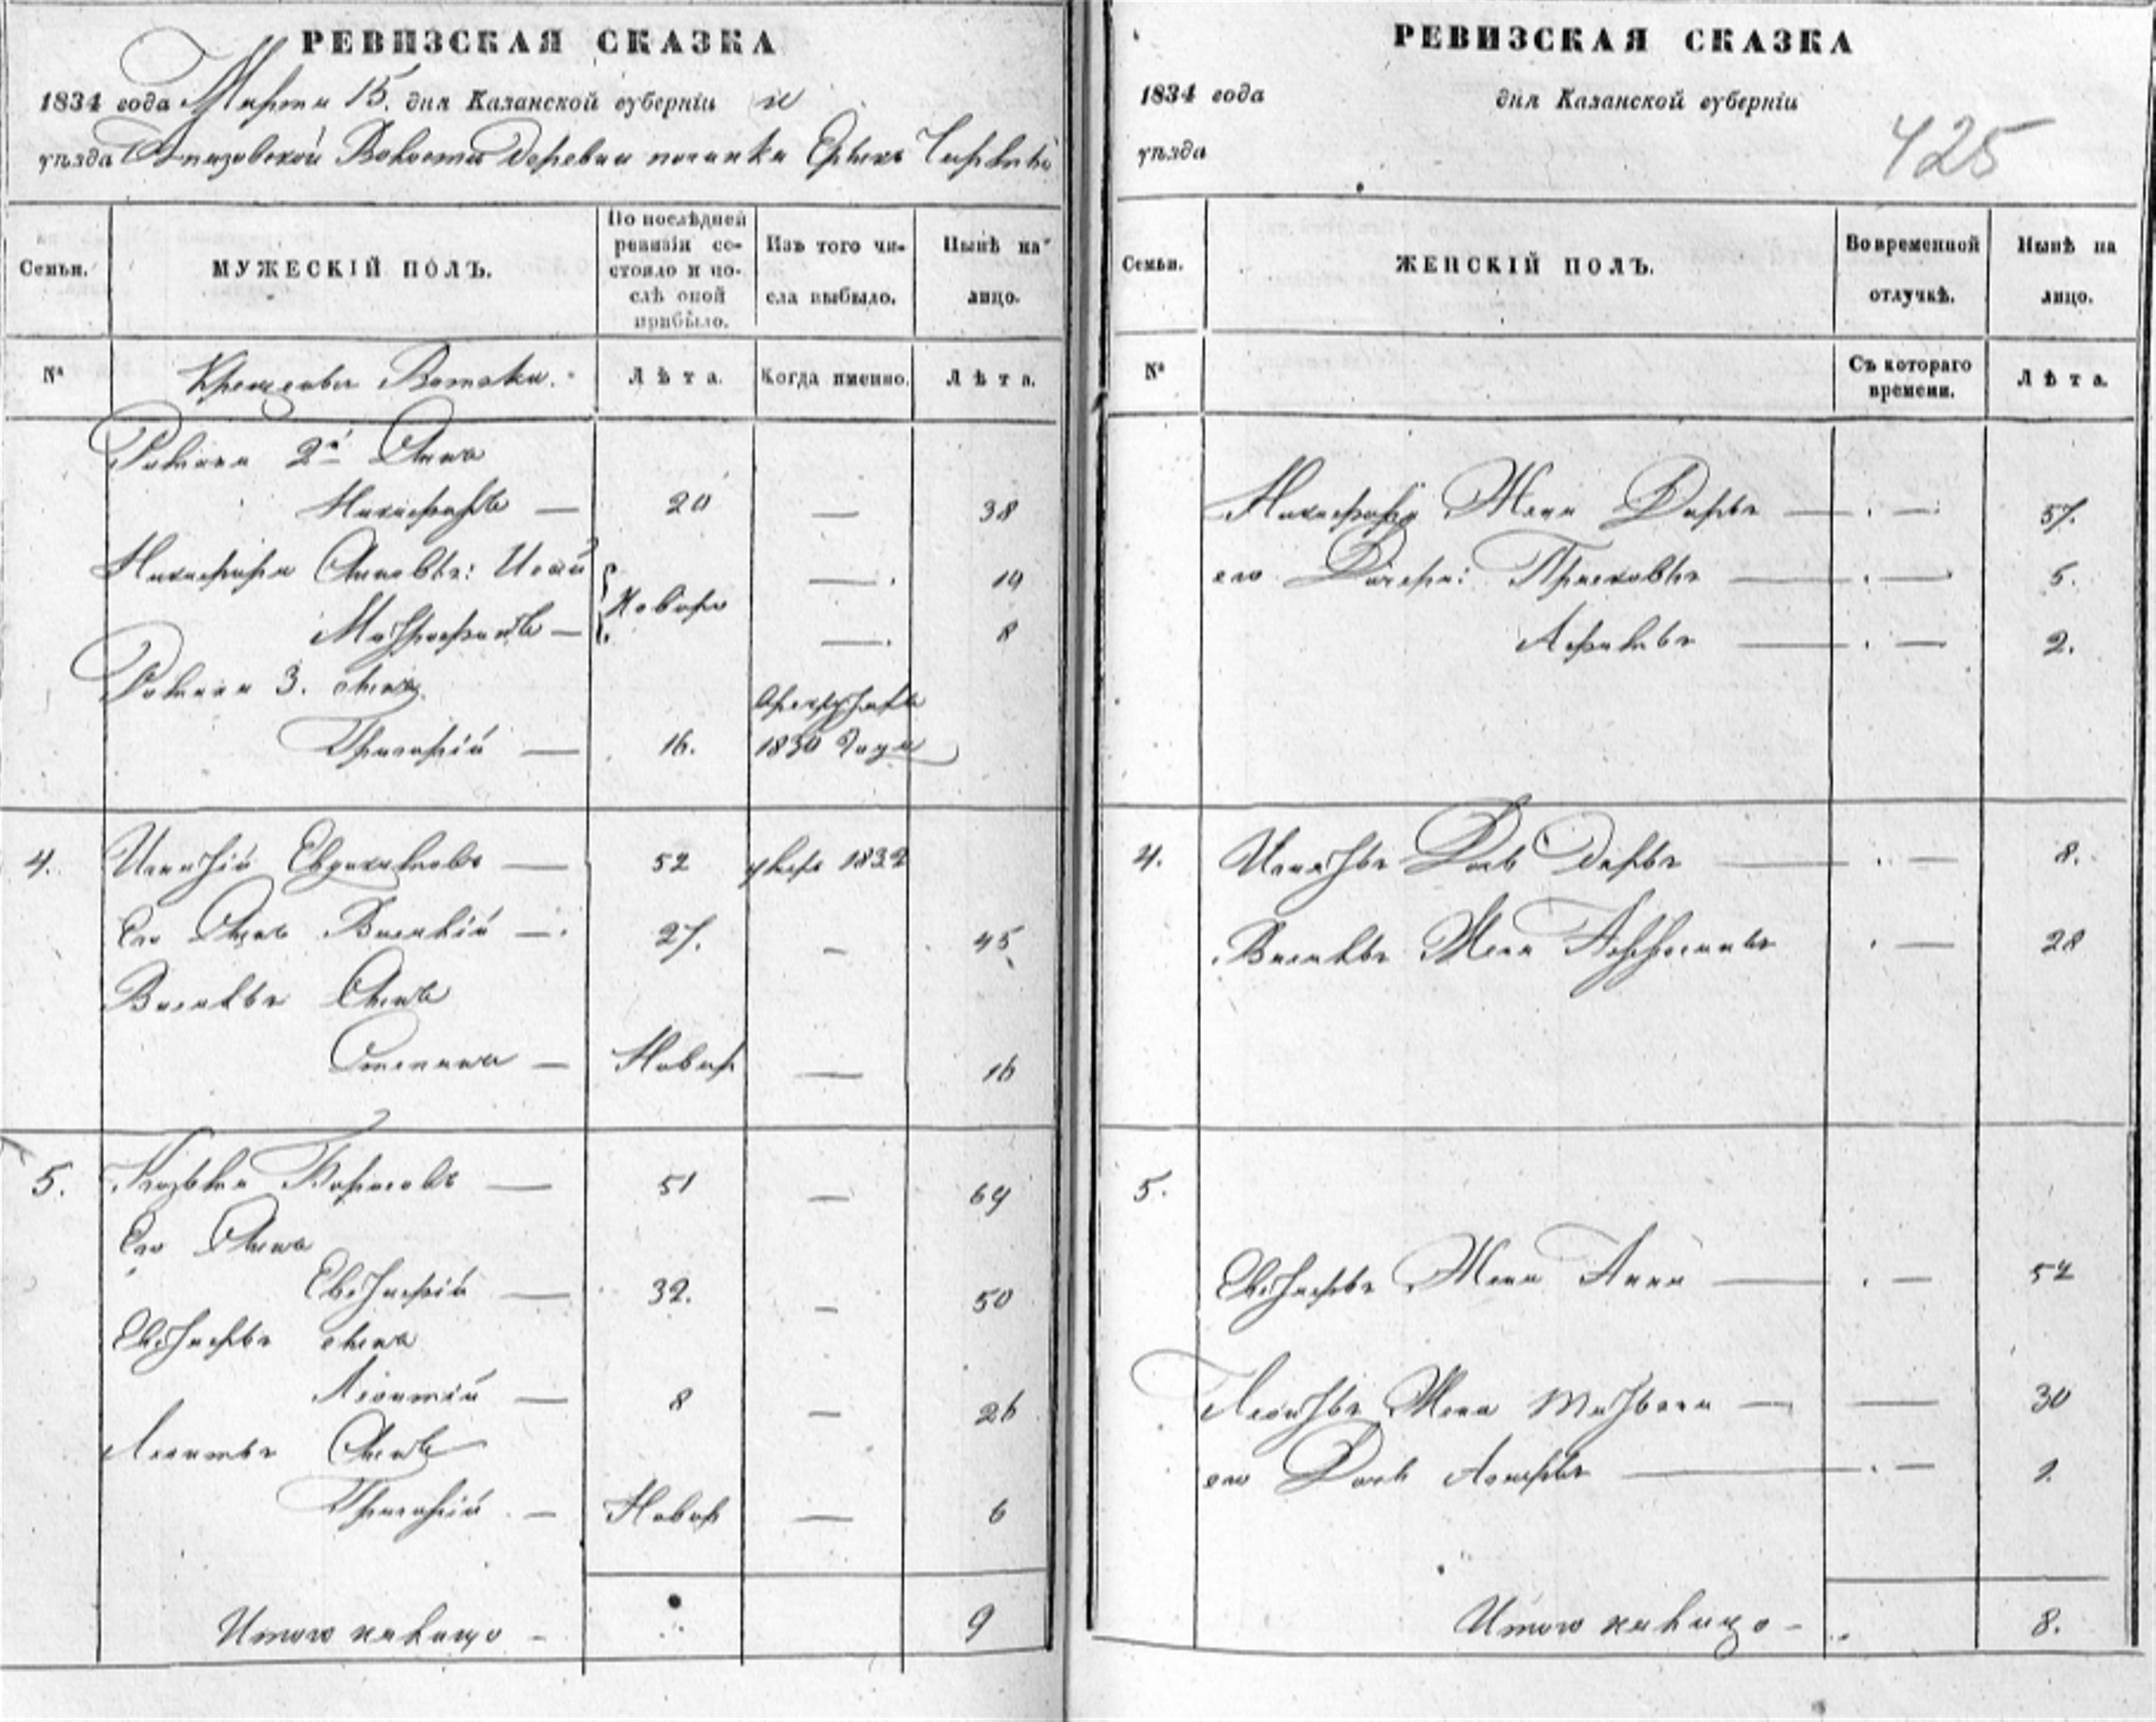 РЕВИЗСКАЯ СКАЗКА
1834 года Марта 15. дня Казанской губерніи и
уѣзда Волости деревни починка
Семьи.
МУЖЕСКІЙ ПОЛЪ.
По послѣдней ревизіи состояло и послѣ оной прибыло.
Изъ того числа выбыло.
Нынѣ на лицо.
№
Крещеные Вотяки.
Лѣта.
Когда именно.
Лѣта.
Романа 2й Сынъ
Никифоръ — 20 — 38
Никифора Сыновья: Исай — 14
Новорo
Митрофанъ — — 8
Романа 3. сынъ
Григорій — 16. 1830 Года
4. Игнатій — 52 умеръ 1832
Его Сынъ Василій — 27. — 45
Васильи Сынъ
Степанъ — Новор — 16
5. Козьма Борисовъ — 51 — 69
Его Сынъ
Евстафій — 32. — 50
Евстафьи сынъ
Леонтій — 8 — 26
Леонтьи Сынъ
Григорій — Новор — 6
Итого налицо – 9
РЕВИЗСКАЯ СКАЗКА
1834 года дня Казанской губерніи
уѣзда
425
Семьи.
ЖЕНСКІЙ ПОЛЪ.
Во временной отлучкѣ.
Нынѣ на лицо.
№
Съ котораго времени.
Лѣта.
Никифора Жена Дарья — — 37.
его Дочери: Прасковья — — 5.
— — 2.
4. Игнатья Дочь Дарья — — 8.
Василья Жена — 28
5.
Евстафья Жена Анна — — 52
Леонтья Жена Матрена — — 30
его Дочь — —
Итого налицо – 8.